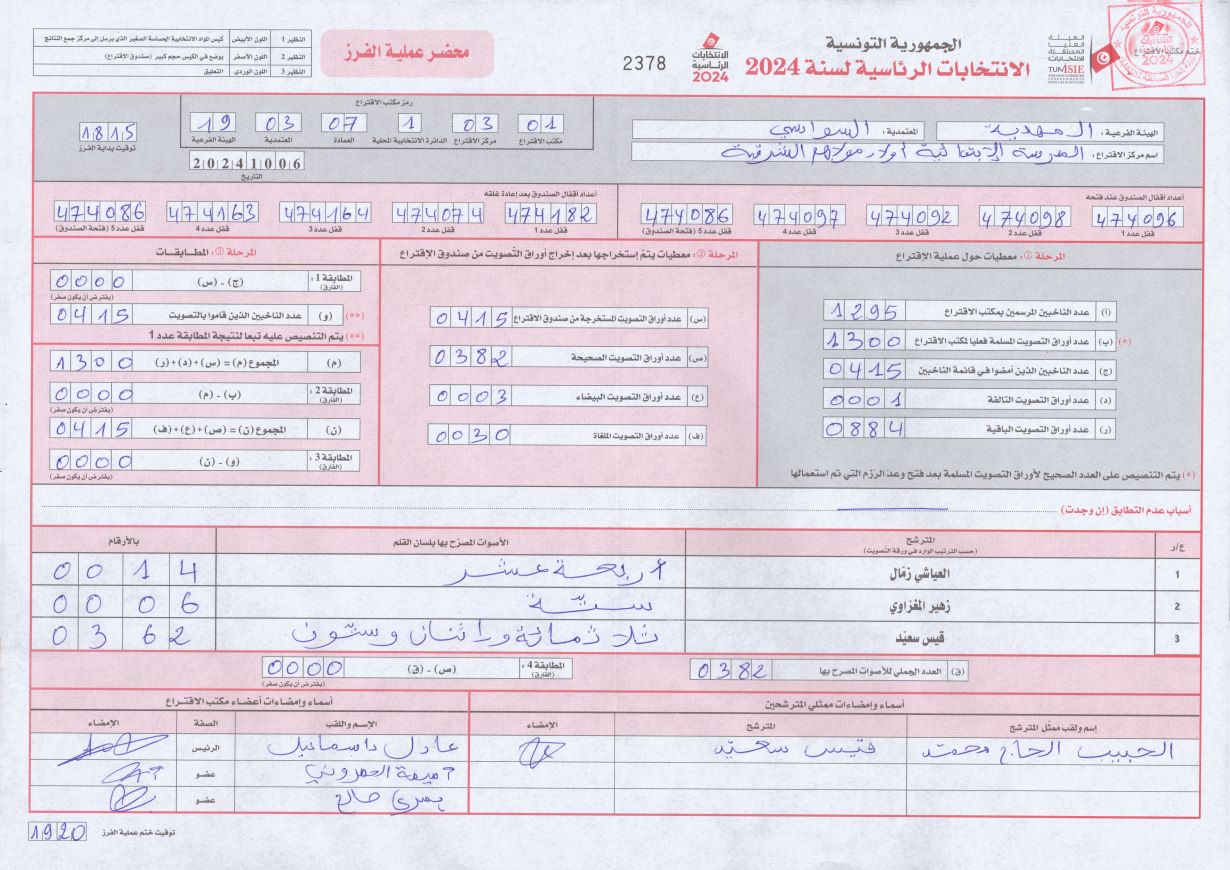 الجمهورية التونسية
الانتخابات الرئاسية لسنة 2024
ختم مكتب الاقتراع
الهيئة العليا المستقلة للانتخابات
TUNISIE
الانتخابات الرئاسية 2024
2378
محضر عملية الفرز
النظير 1 اللون الأبيض كيس المواد الانتخابية الحساسة الصغير الذي يرسل إلى مركز جمع النتائج
النظير 2 اللون الأصفر يوضع في الكيس حجم كبير (صندوق الاقتراع)
النظير 3 اللون الوردي التعليق
الهيئة الفرعية : المهدية المعتمدية : السواسي
اسم مركز الاقتراع : المدرسة الابتدائية أولاد مولاهم الشرقية
رمز مكتب الاقتراع
01 03 1 07 03 19
مكتب الاقتراع مركز الاقتراع الدائرة الانتخابية المحلية العمادة المعتمدية الهيئة الفرعية
20241006
التاريخ
1815
توقيت بداية الفرز
أعداد أقفال الصندوق عند فتحه
474096 474098 474092 474097 474086
قفل عدد 1 قفل عدد 2 قفل عدد 3 قفل عدد 4 قفل عدد 5 (فتحة الصندوق)
أعداد أقفال الصندوق بعد إعادة غلقه
474182 474074 474164 474163 474086
قفل عدد 1 قفل عدد 2 قفل عدد 3 قفل عدد 4 قفل عدد 5 (فتحة الصندوق)
المرحلة ①: معطيات حول عملية الاقتراع
(أ) عدد الناخبين المرسمين بمكتب الاقتراع 1295
(*) (ب) عدد أوراق التصويت المسلمة فعليا لمكتب الاقتراع 1300
(ج) عدد الناخبين الذين أمضوا في قائمة الناخبين 0415
(د) عدد أوراق التصويت التالفة 0001
(ر) عدد أوراق التصويت الباقية 0884
(*) يتم التنصيص على العدد الصحيح لأوراق التصويت المسلمة بعد فتح وعد الرزم التي تم استعمالها
المرحلة ②: معطيات يتم إستخراجها بعد إخراج أوراق التصويت من صندوق الاقتراع
(س) عدد أوراق التصويت المستخرجة من صندوق الاقتراع 0415
(ص) عدد أوراق التصويت الصحيحة 0382
(ع) عدد أوراق التصويت البيضاء 0003
(ف) عدد أوراق التصويت الملغاة 0030
المرحلة ③: المطابقات
المطابقة 1 : (الفارق) (ج) - (س) 0000
(يفترض أن يكون صفر)
(**) (و) عدد الناخبين الذين قاموا بالتصويت 0415
(**) يتم التنصيص عليه تبعا لنتيجة المطابقة عدد 1
(م) المجموع (م) = (س) + (د) + (ر) 1300
المطابقة 2 : (الفارق) (ب) - (م) 0000
(يفترض أن يكون صفر)
(ن) المجموع (ن) = (ص) + (ع) + (ف) 0415
المطابقة 3 : (الفارق) (و) - (ن) 0000
(يفترض أن يكون صفر)
أسباب عدم التطابق (إن وجدت)
ع/ر المترشح (حسب الترتيب الوارد في ورقة التصويت) الأصوات المصرّح بها بلسان القلم بالأرقام
1 العياشي زمّال أربعة عشر 0014
2 زهير المغزاوي ستّة 0006
3 قيس سعيّد ثلاثمائة واثنان وستون 0362
(ق) العدد الجملي للأصوات المصرح بها 0382
المطابقة 4 : (الفارق) (ص) - (ق) 0000
(يفترض أن يكون صفر)
أسماء وإمضاءات ممثلي المترشحين
إسم ولقب ممثّل المترشح المترشح الإمضاء
الحبيب الحاج محمد قيس سعيّد
أسماء وإمضاءات أعضاء مكتب الاقتراع
الاسم واللقب الصفة الإمضاء
عادل الرئيس
أميمة عضو
يسرى صالح عضو
توقيت ختم عملية الفرز 1920